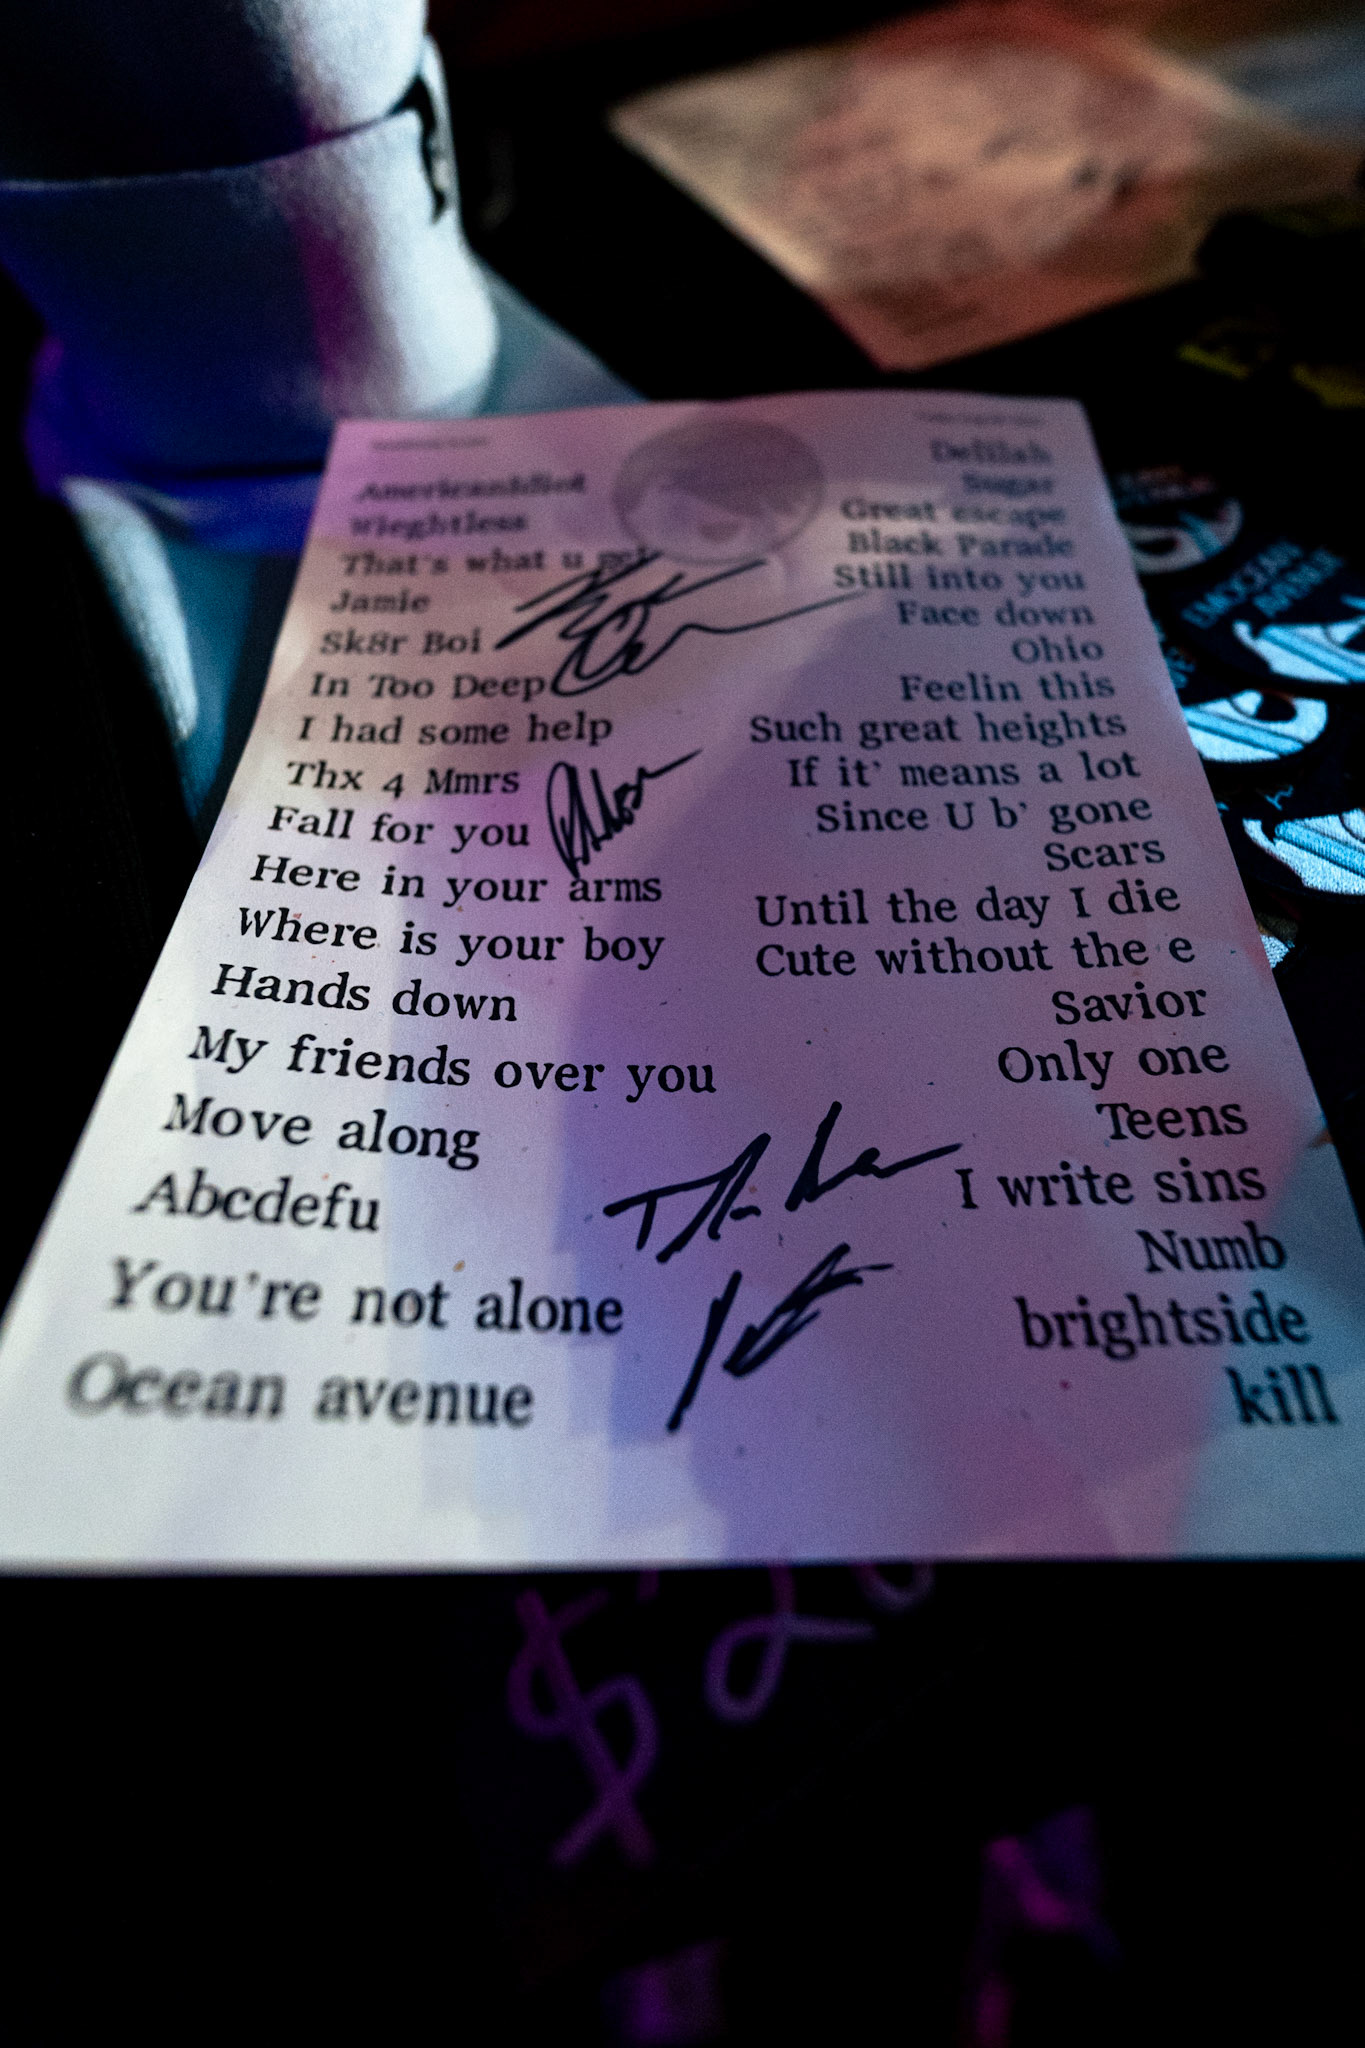 AmericanIdiot
Wieghtless
That's what u get
Jamie
Sk8r Boi
In Too Deep
I had some help
Thx 4 Mmrs
Fall for you
Here in your arms
Where is your boy
Hands down
My friends over you
Move along
Abcdefu
You're not alone
Ocean avenue
Delilah
Sugar
Great escape
Black Parade
Still into you
Face down
Ohio
Feelin this
Such great heights
If it' means a lot
Since U b' gone
Scars
Until the day I die
Cute without the e
Savior
Only one
Teens
I write sins
Numb
brightside
kill
EMOCEAN
AVENUE